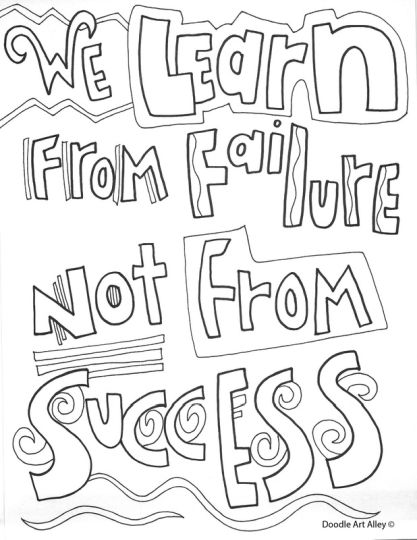 We Learn
From Failure
Not From
Success
Doodle Art Alley ©